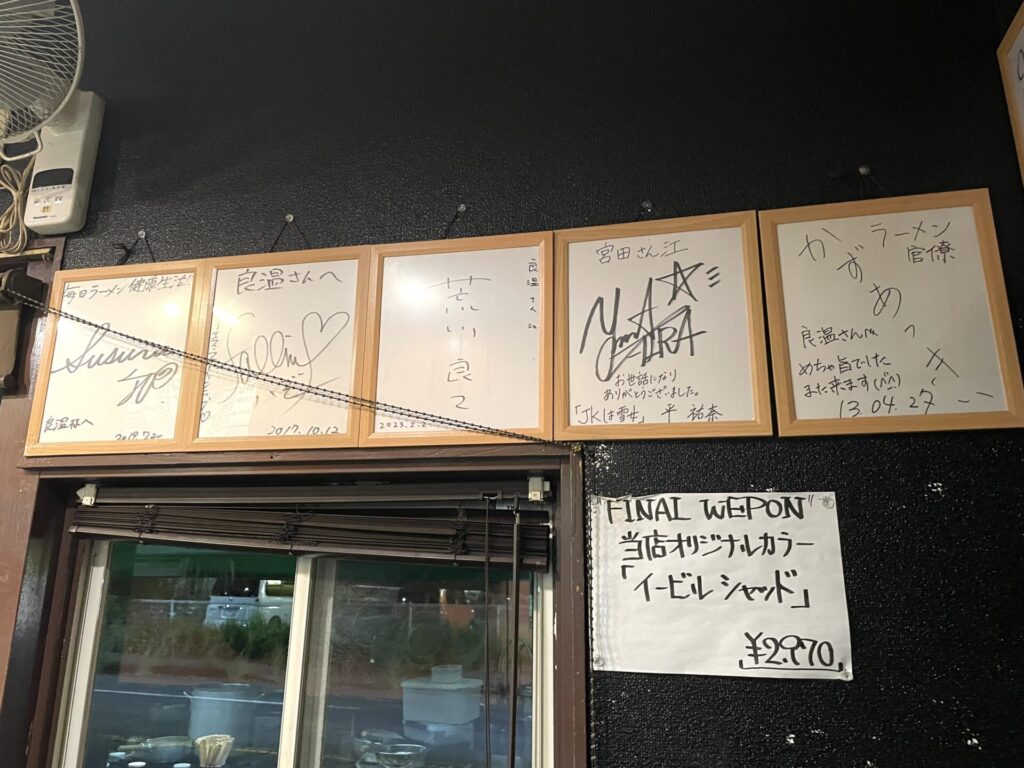 毎日ラーメン健康生活!!
Susuru
良温様へ
良温さんへ
2017.10.12
良温さん江
荒川良々
宮田さん江
お世話になり
ありがとうございました。
「JKは雪女」 平 祐奈
ラーメン
官僚
かずあっきぃ
良温さん
めちゃ旨でした
また来ます(^^)
13.04.27
"FINAL WEPON"
当店オリジナルカラー
「イービルシャッド」
¥2.970